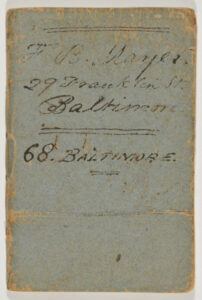 F. B. Mayer.
29 Franklin St
Baltimore
68. BALTIMORE.